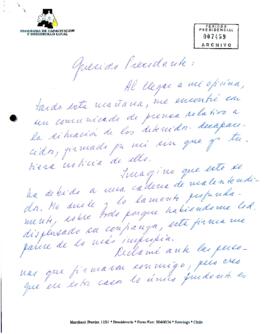 PROGRAMA DE CAPACITACION
Y DESARROLLO LOCAL
PERIODO
PRESIDENCIAL
007159
ARCHIVO
Querido Presidente:
Al llegar a mi oficina,
tarde esta mañana, me encontré con
un comunicado de prensa relativo a
la situación de los detenidos-desapare-
cidos, firmado por mí sin que yo tu-
viera noticia de ello.
Imagino que esto se
ha debido a una cadena de malentendi-
dos. No dude y lo lamento profunda-
mente, sobre todo porque habiéndome Ud.
dispensado su confianza, esta firma me
parece de lo más impropia.
ante las perso-
nas que firmaron conmigo, pero creo
que en este caso lo único prudente es
Providencia • Fono Fax: • Santiago • Chile